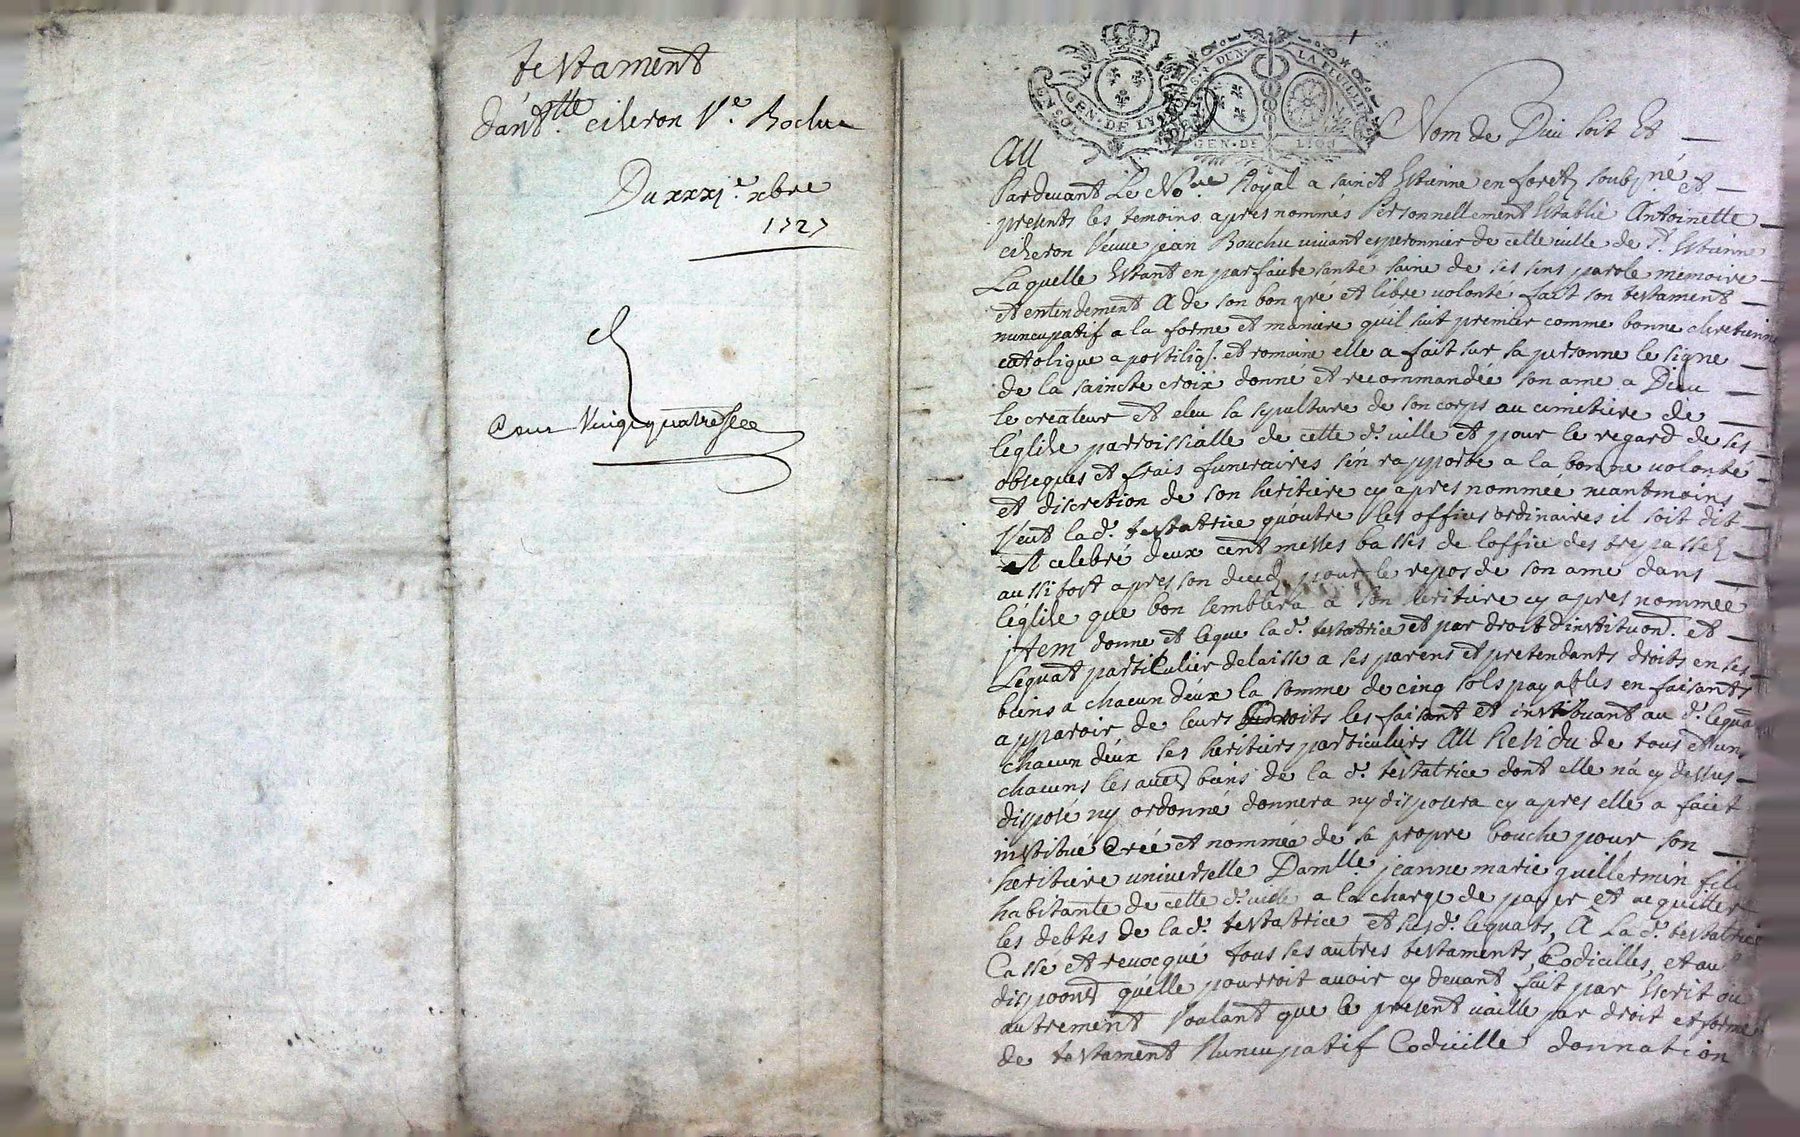 testament
d'ant.tte ciheron V.e Bochu
Du xxxj.e xbre
1727
Pour
GEN·DE LYON
GEN·DE LION
Au Nom de Dieu soit Et
Pardevant Le No.re Royal a sainct Estienne en foretz soubz.né et
presents les temoins apres nommés Personnellement Establie Antoinette
ciheron Veuve jean Bouchu vivant esperonnier de cette ville de S.t Estienne
Laquelle Estant en parfaite santé saine de ses sens parole memoire
et entendement A de son bon gré et libre volonté fait son testament
nuncupatif a la forme et maniere quil suit premier comme bonne chretienne
catolique apostiliq. et romaine elle a fait sur sa personne le signe
de la saincte croix donné et recommandée son ame a Dieu
le createur et eleu la sepulture de son corps au cimetiere de
l'église parroissialle de cette d. ville et pour le regard de ses
obseques et frais funeraires s'én rapporte a la bonne volonté
et discretion de son heritiere cy apres nommée neantmoins
Veut la d. testatrice qu'outre les offices ordinaires il soit dit
et celebré deux cent messes basses de loffice des trepassez
aussitost apres son decedz pour le repos de son ame dans
l'église que bon semblera a son heritiere cy apres nommée
jtem donne et legue la d. testatrice et par droit d'instituon. et
Lequat particulier delaisse a ses parens et pretendants droits en ses
biens a chacun déux la somme de cinq sols payables en faisants
apparoir de leurs droits les faisant et instituant au d. lequat
chacun déux ses heritiers particuliers Au Residu de tous et uns
chacuns les autres biens de la d. testatrice dont elle n'a cy dessus
disposé ny ordonné donnera ny disposera cy apres elle a faict
institué créé et nommée de sa propre bouche pour son
heritiere universelle Dam.lle jeanne marie guillermin fille
habitante de cette d. ville a la charge de payer et acquitter
les debtes de la d. testatrice et sus d. lequats, A La d. testatrice
Cassé et revocqué tous ses autres testaments, Codicilles, et au
disponon qu'élle pourroit avoir cy devant fait par Escrit ou
autrement Voulant que le present vaille par droit et forme
de testament Nuncupatif Codicille donnation